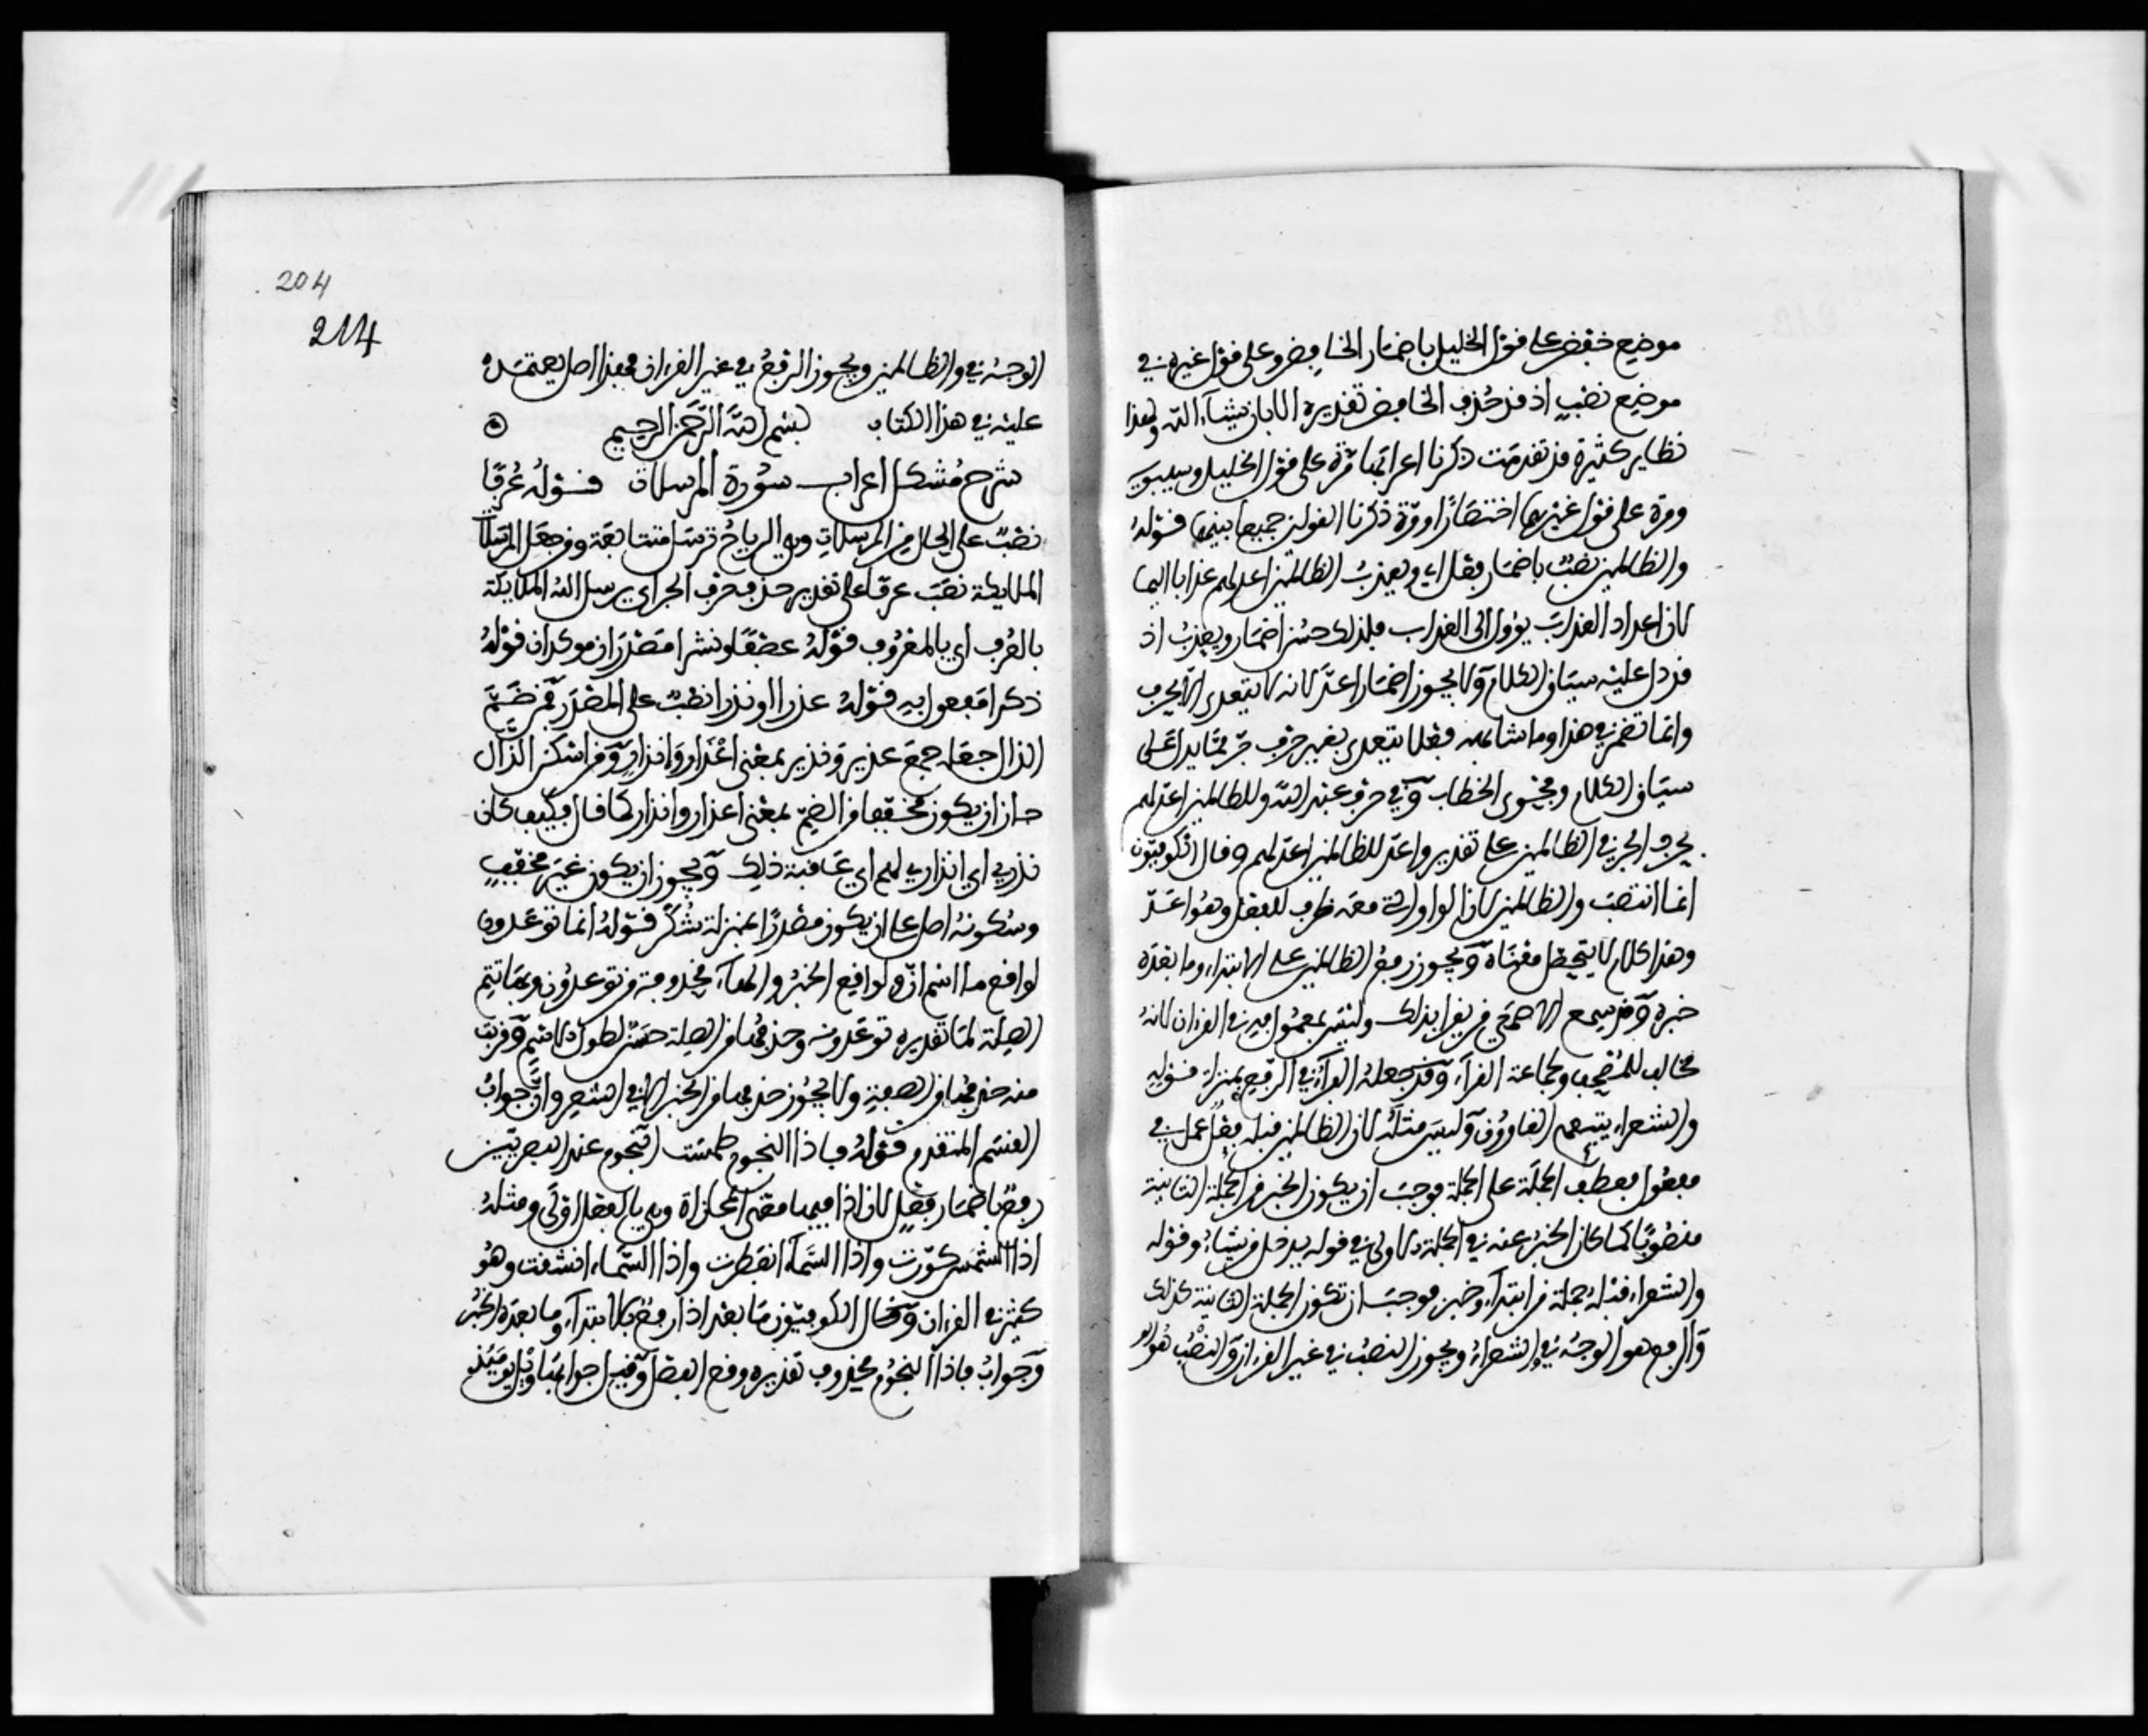 موضع خفض على قول الخليل باضمار الخافض وعلى قول غيره في
موضع نصب اذ قد حذف الخافض تقديره الا بان يشاء الله ولهذا
نظاير كثيرة قد تقدمت ذكرنا اعرابها مرة على قول الخليل وسيبويه
ومرة على قول غيرهما اختصارا ومرة ذكرنا القولين جميعا بينهما قوله
والظالمين نصب باضمار فعل اي ويعذب الظالمين اعد لهم عذابا اليما
لان اعداد العذاب يؤول الى العذاب فلذلك حسن اضمار ويعذب اذ
قد دل عليه سياق الكلام ولا يجوز اضمار اعد لانه لا يتعدى الا بحرف
وانما تضمر في هذا وما شابهه فعلا يتعدى بغير حرف جر مما يدل على
سياق الكلام وفحوى الخطاب وفي حرف عبد الله وللظالمين اعد لهم
بحرف الجر في الظالمين على تقدير واعد للظالمين اعد لهم وقال الكوفيون
انما انتصب والظالمين لان الواو التي معه ظرف للفعل وهو اعد
وهذا كلام لا يتحصل معناه ويجوز رفع الظالمين على الابتداء وما بعده
خبره وقد سمع الاصمعي من يقرا بذلك وليس بمعمول به في القرءان لانه
مخالف للمصحف ولجماعة القراء وقد جعله الفراء في الرفع بمنزلة قوله
والشعراء يتبعهم الغاوون وليس مثله لان الظالمين قبله فعل عمل في
مفعول فعطف الجملة على الجملة فوجب ان يكون الخبر في الجملة الثانية
منصوبا كما كان الخبر عنه في الجملة الاولى في قوله يدخل من يشاء وقوله
والشعراء قبله جملة من ابتداء وخبر فوجب ان تكون الجملة الثانية كذلك
والرفع هو الوجه في والشعراء ويجوز النصب في غير القرءان والنصب هو
204
214
الوجه في والظالمين ويجوز الرفع في غير القرءان فهذا اصل يعتمد
عليه في هذا الكتاب بسم الله الرحمن الرحيم
شرح مشكل اعراب سورة المرسلات قوله عرفا
نصب على الحال من المرسلات وهي الرياح ترسل متتابعة ومن جعل المرسلات
الملايكة نصب عرفا على تقدير حذف حرف الجر اي يرسل الله الملايكة
بالعرف اي بالمعروف قوله عصفا ونشرا مصدران موكدان قوله
ذكرا مفعول به قوله عذرا او نذرا نصب على المصدر فمن ضم
الذال جعله جمع عذير ونذير بمعنى اعذار وانذار ومن اسكن الذال
جاز ان يكون مخففا من الضم بمعنى اعذار وانذار كما قال فكيف كان
نذيري اي انذاري لهم اي عاقبة ذلك ويجوز ان يكون غير مخفف
وسكونه اصل على ان يكون مصدرا بمنزلة شكر قوله انما توعدون
لواقع ما اسم ان ولواقع الخبر والهاء محذوفة من توعدون وبها تتم
الصلة لما تقديره توعدونه وحذفها من الصلة حسن لطول الاسم وقريب
منه حذفها من الصفة ولا يجوز حذفها من الخبر الا في الشعر وان جواب
القسم المتقدم قوله فاذا النجوم طمست النجوم عند البصريين
رفع باضمار فعل لان اذا فيها معنى المجازاة وهي بالفعل اولى ومثله
اذا الشمس كورت واذا السماء انفطرت واذا السماء انشقت وهو
كثير في القرءان وقال الكوفيون ما بعد اذا رفع بالابتداء وما بعده الخبر
وجواب فاذا النجوم محذوف تقديره وقع الفصل وقيل جوابها ويل يومئذ